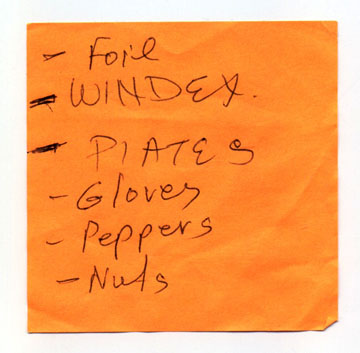 - Foil
- WINDEX.
- PlATES
- Gloves
- Peppers
- Nuts